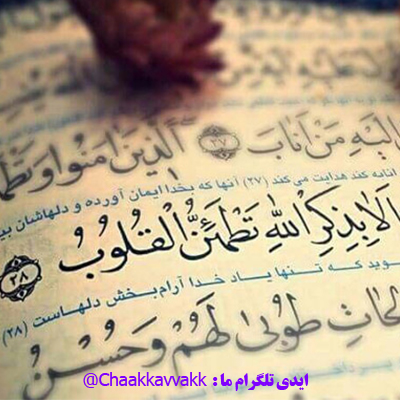 إِلَيْهِ مَنْ أَنَابَ ﴿۲۷﴾ الَّذِينَ آمَنُوا وَتَطْمَ
انابه کند هدایت می کند (۲۷) آنها که بخدا ایمان آورده و دلهاشان بی
أَلَا بِذِكْرِ اللَّهِ تَطْمَئِنُّ الْقُلُوبُ ﴿۲۸﴾
وید که تنها یاد خدا آرام‌بخش دلهاست (۲۸)
الِحَاتِ طُوبَىٰ لَهُمْ وَحُسْنُ
ایدی تلگرام ما : @Chaakkavvakk